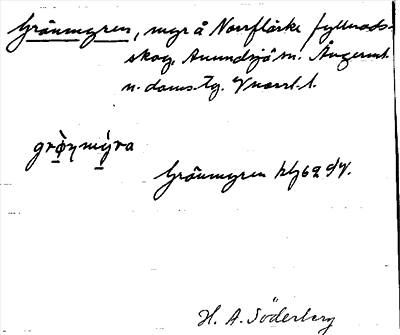 Gränmyren, myr å Norrflärke fyllnads-
skog, Anundsjö sn. Ångerml.
n. doms. tg. Vnorrl. l.
grø̀ṇmýra
Gränmyren hlj 62 d/y.
H. A. Söderberg